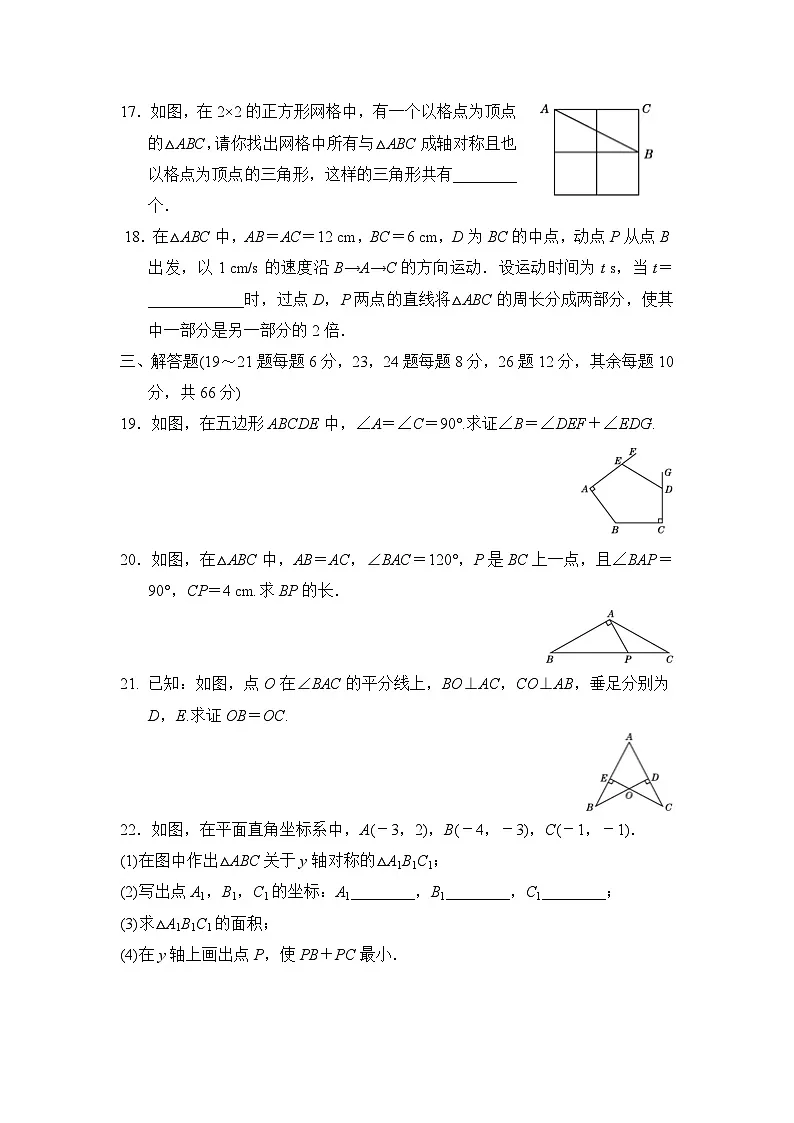 17．如图，在2×2的正方形网格中，有一个以格点为顶点
的△ABC，请你找出网格中所有与△ABC成轴对称且也
以格点为顶点的三角形，这样的三角形共有________
个．
A
C
B
18．在△ABC中，AB＝AC＝12 cm，BC＝6 cm，D为BC的中点，动点P从点B
出发，以1 cm/s的速度沿B→A→C的方向运动．设运动时间为t s，当t＝
____________时，过点D，P两点的直线将△ABC的周长分成两部分，使其
中一部分是另一部分的2倍．
三、解答题(19～21题每题6分，23，24题每题8分，26题12分，其余每题10
分，共66分)
19．如图，在五边形ABCDE中，∠A＝∠C＝90°.求证∠B＝∠DEF＋∠EDG.
F
E
G
A
D
B
C
20．如图，在△ABC中，AB＝AC，∠BAC＝120°，P是BC上一点，且∠BAP＝
90°，CP＝4 cm.求BP的长．
A
B
P
C
21. 已知：如图，点O在∠BAC的平分线上，BO⊥AC，CO⊥AB，垂足分别为
D，E.求证OB＝OC.
A
E
D
O
B
C
22．如图，在平面直角坐标系中，A(－3，2)，B(－4，－3)，C(－1，－1)．
(1)在图中作出△ABC关于y轴对称的△A₁B₁C₁；
(2)写出点A₁，B₁，C₁的坐标：A₁________，B₁________，C₁________；
(3)求△A₁B₁C₁的面积；
(4)在y轴上画出点P，使PB＋PC最小．